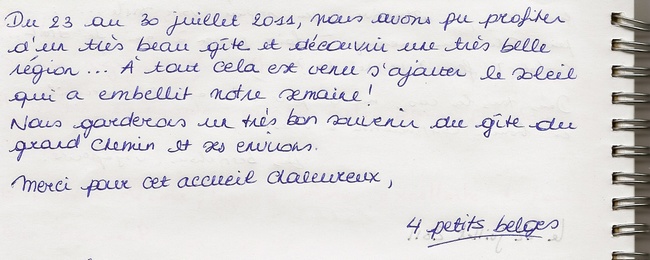 Du 23 au 30 juillet 2011, nous avons pu profiter
d'un très beau gîte et découvrir une très belle
région... À tout cela est venu s'ajouter le soleil
qui a embellit notre semaine!
Nous garderons un très bon souvenir du gîte du
grand chemin et ses environs.
Merci pour cet accueil chaleureux,
4 petits belges